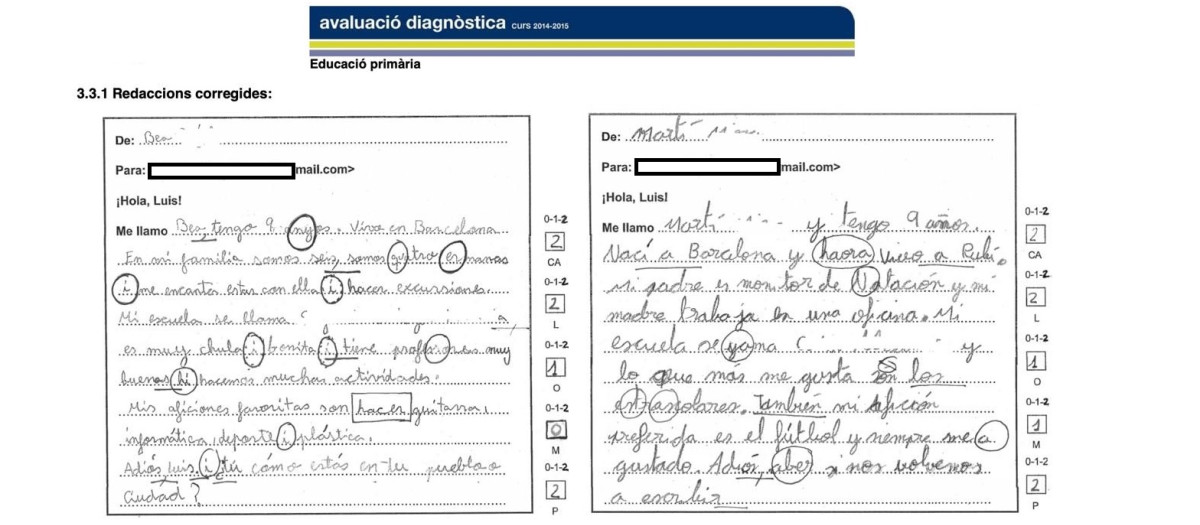 avaluació diagnòstica curs 2014-2015
Educació primària
3.3.1 Redaccions corregides:
De: Bea
Para: mail.com>
¡Hola, Luis!
Me llamo Bea, tengo 9 anyos. Vivo en Barcelona
En mi familia somos seis, somos qutro ermanas
i me encanta estar con ella i hacer excursiones.
Mi escuela se llama
es muy chula i bonita i tiene profesores muy
buenos hi hacemos muchas actividades.
Mis aficiones favoritas son hacer guitarra,
informática, deporte i plástica.
Adiós Luis i tú cómo estás en tu pueblo o
ciudad?
0-1-2
2
CA
0-1-2
2
L
0-1-2
1
O
0-1-2
0
M
0-1-2
2
P
De: Martí
Para: mail.com>
¡Hola, Luis!
Me llamo Martí y tengo 9 años.
Nací a Barcelona y haora vivo a Rubí.
Mi padre es monitor de Natación y mi
madre trabaja en una oficina. Mi
escuela se yama y
lo que más me gusta son los
entrascolares. También mi afición
preferida es el fútbol y siempre me a
gustado. Adiós, aber si nos volvemos
a escribir
0-1-2
2
CA
0-1-2
2
L
0-1-2
1
O
0-1-2
1
M
0-1-2
2
P